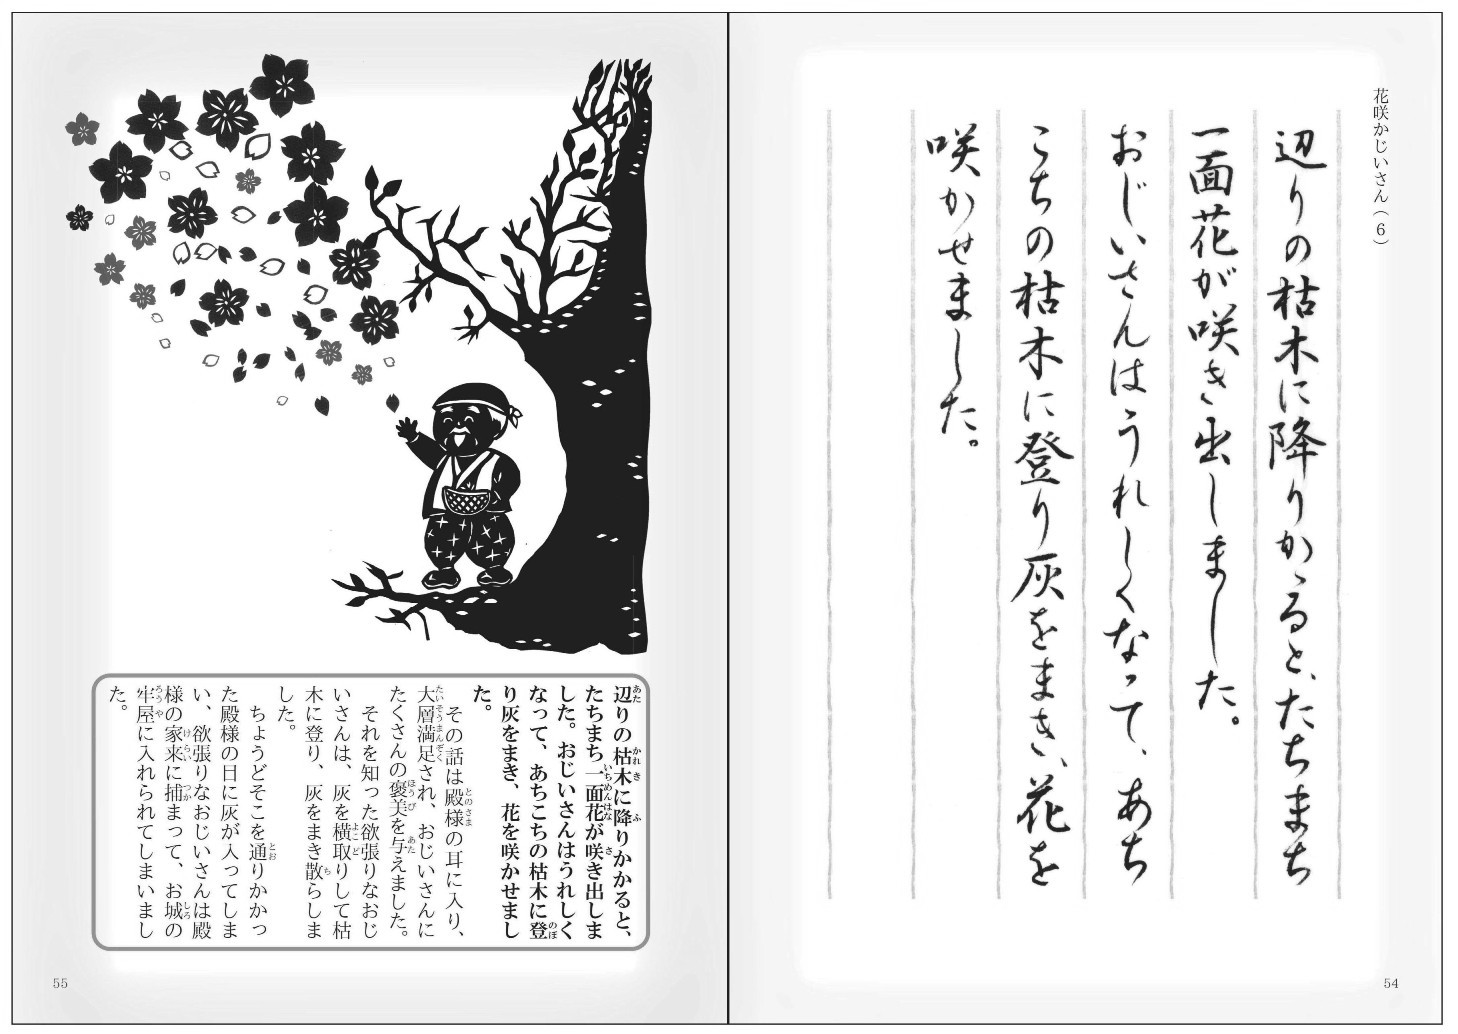 花咲かじいさん（6）
辺りの枯木に降りかゝると、たちまち
一面花が咲き出しました。
おじいさんはうれしくなって、あち
こちの枯木に登り灰をまき、花を
咲かせました。
54
辺りの枯木に降りかかると、
たちまち一面花が咲き出しま
した。おじいさんはうれしく
なって、あちこちの枯木に登
り灰をまき、花を咲かせまし
た。
その話は殿様の耳に入り、
大層満足され、おじいさんに
たくさんの褒美を与えました。
それを知った欲張りなおじ
いさんは、灰を横取りして枯
木に登り、灰をまき散らしま
した。
ちょうどそこを通りかかっ
た殿様の目に灰が入ってしま
い、欲張りなおじいさんは殿
様の家来に捕まって、お城の
牢屋に入れられてしまいまし
た。
55